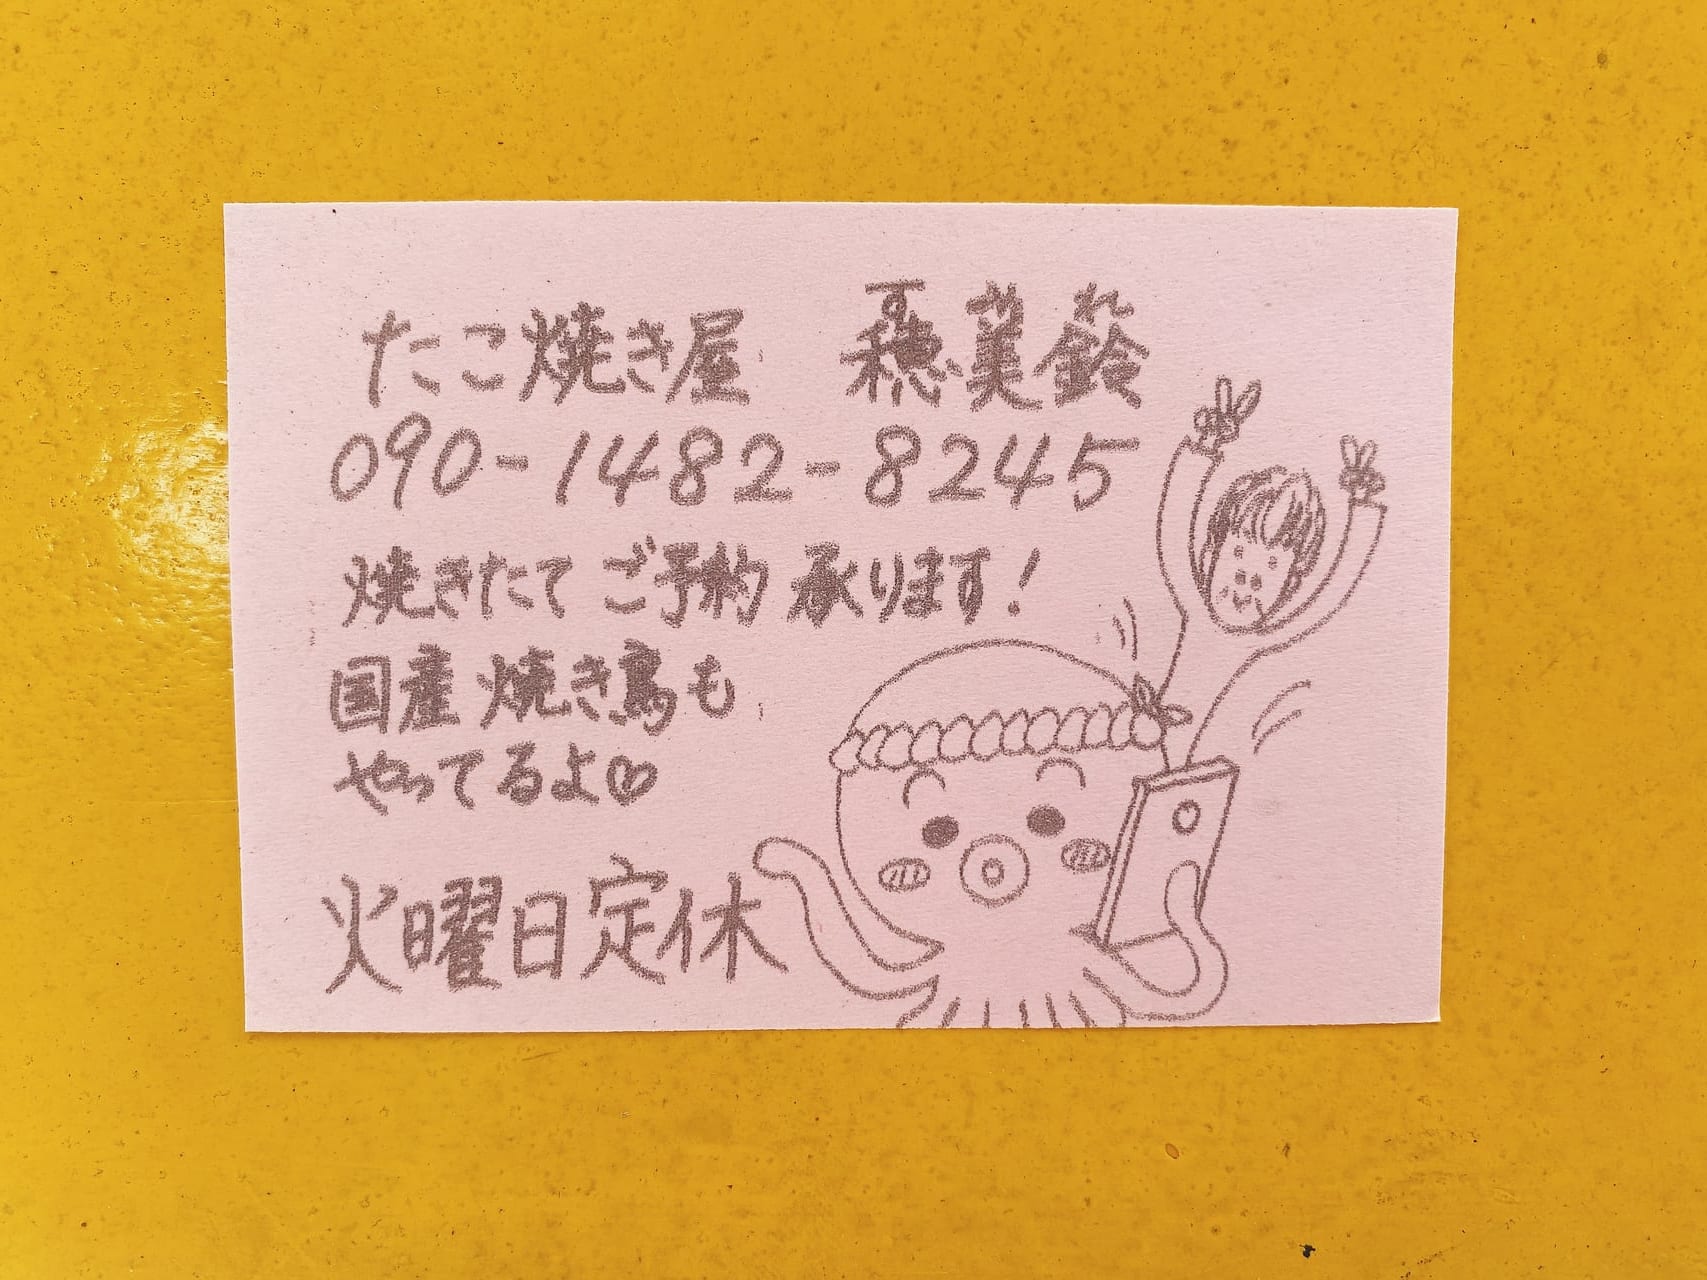 たこ焼き屋 穂美鈴
090-1482-8245
焼きたて ご予約 承ります!
国産 焼き鳥も
やってるよ♡
火曜日定休